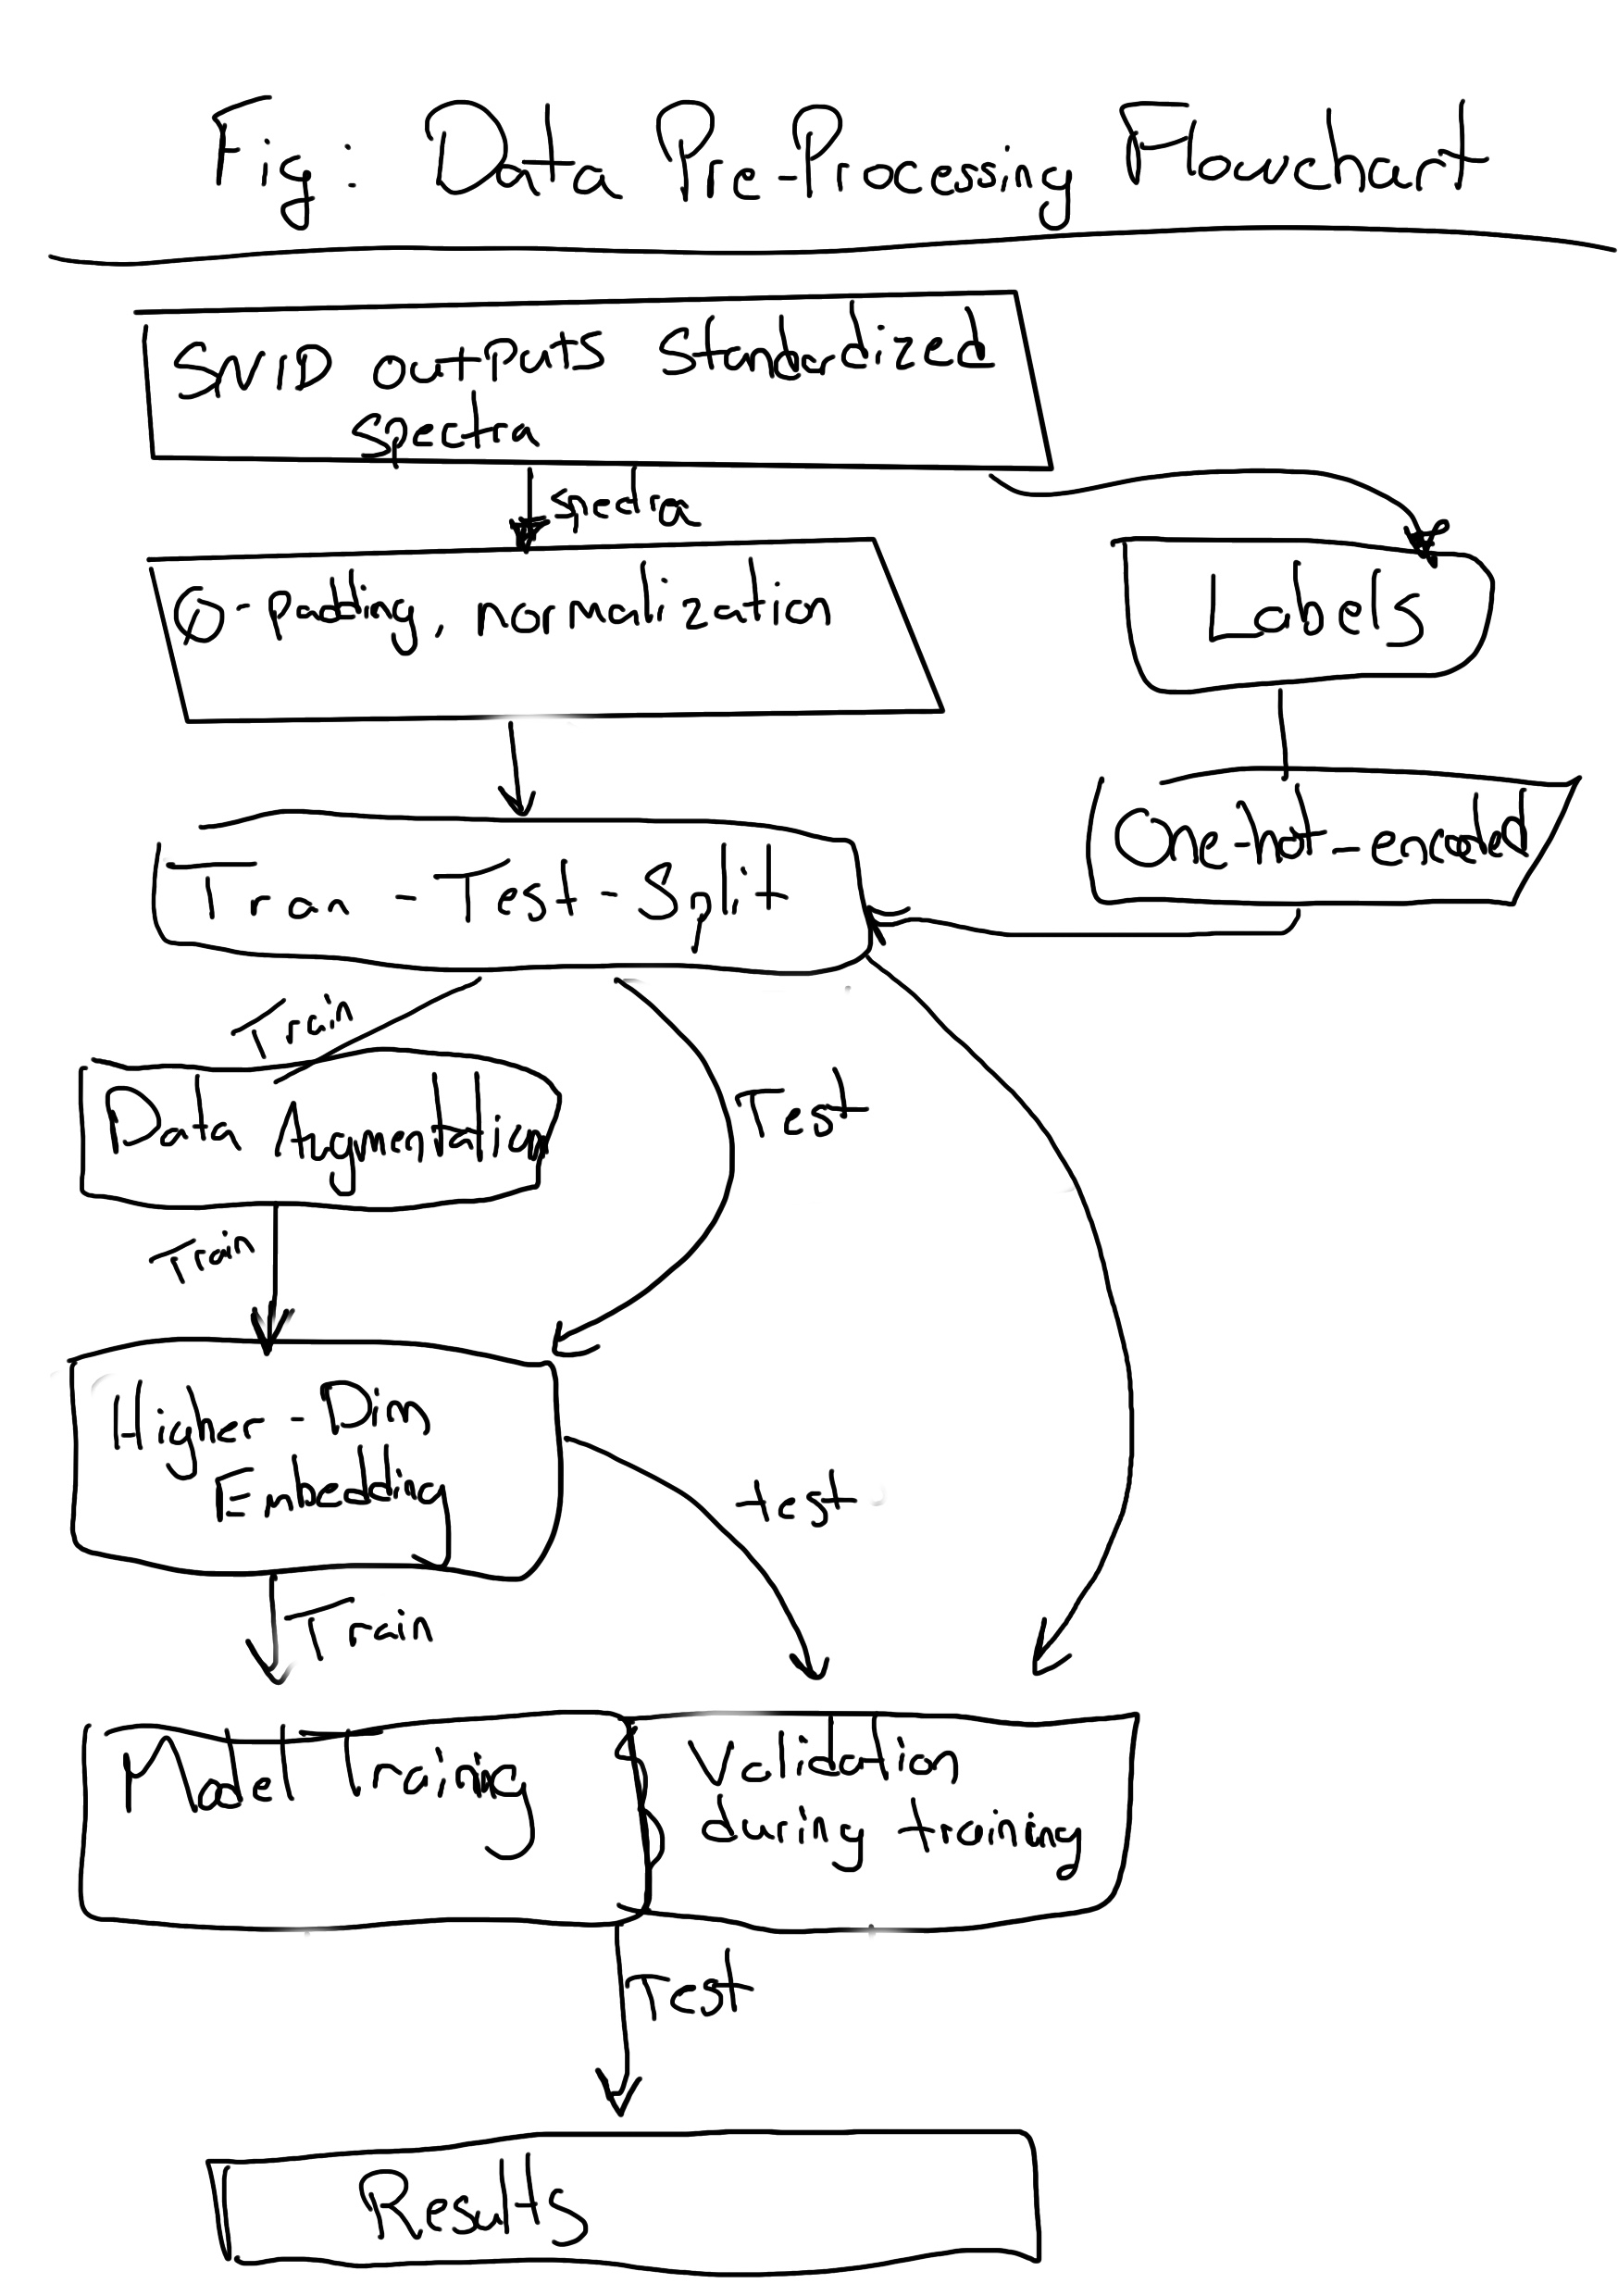 Fig: Data Pre-Processing Flowchart
SNID outputs Standardized
spectra
spectra
0-padding, normalization
Labels
One-hot-encoded
Tran-Test-Split
Train
Data Augmentation
Test
Train
Higher-Dim
Embedding
test
Train
Model Training
Validation
during training
Test
Results